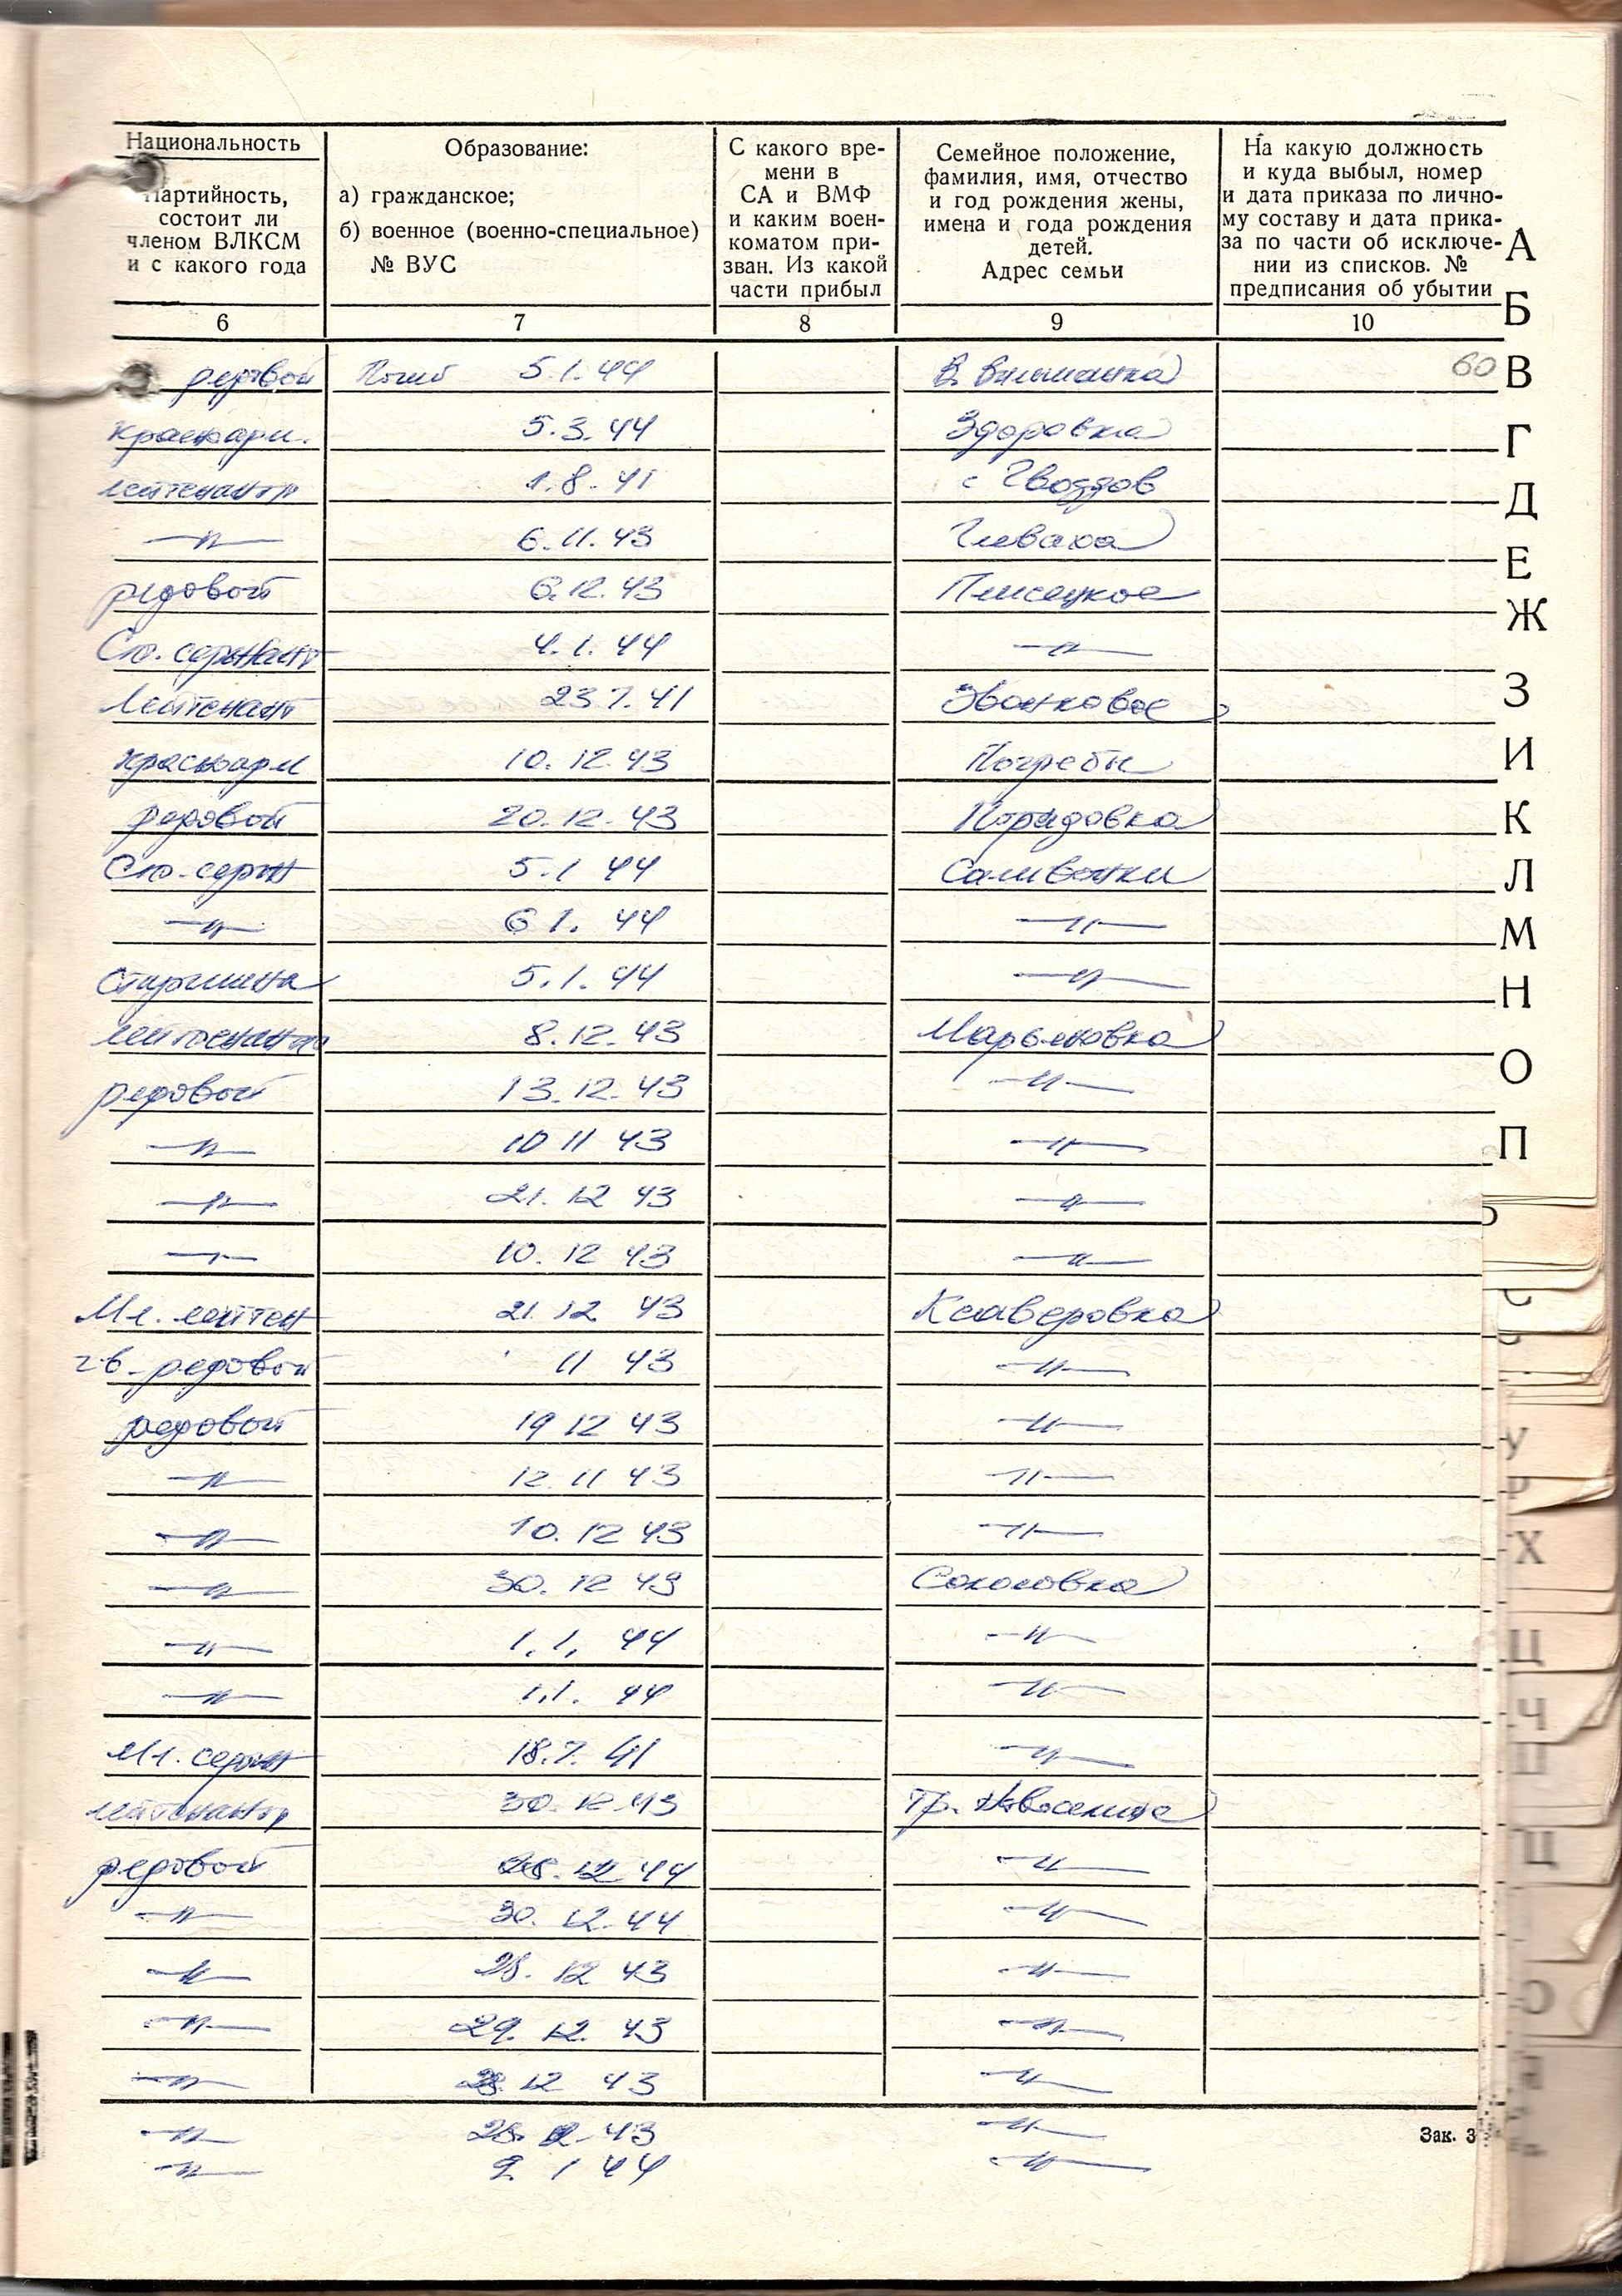 Национальность
Партийность,
состоит ли
членом ВЛКСМ
и с какого года
Образование:
а) гражданское;
б) военное (военно-специальное)
№ ВУС
С какого вре-
мени в
СА и ВМФ
и каким воен-
коматом при-
зван. Из какой
части прибыл
Семейное положение,
фамилия, имя, отчество
и год рождения жены,
имена и года рождения
детей.
Адрес семьи
На какую должность
и куда выбыл, номер
и дата приказа по лично-
му составу и дата прика-
за по части об исключе-
нии из списков. №
предписания об убытии
6 7 8 9 10
рядовой Погиб 5.1.44 В. 60
красноарм. 5.3.44 Здоровка
лейтенант 1.8.41 с Гвоздов
—"— 6.11.43 Глеваха
рядовой 6.12.43 Плисецкое
Ст. сержант 4.1.44 —"—
Лейтенант 23 7.41 Звонковое
красноарм 10.12.43 Погребы
рядовой 20.12.43 Порадовка
Ст. серж 5.1 44 Саливонки
—"— 6 1. 44 —"—
Старшина 5.1.44 —"—
лейтенант 8.12.43 Марьяновка
рядовой 13.12.43 —"—
—"— 10 11 43 —"—
—"— 21.12 43 —"—
—"— 10.12 43 —"—
Мл. лейтен 21 12 43 Ксаверовка
гв. рядовой 11 43 —"—
рядовой 19 12 43 —"—
—"— 12.11 43 —"—
—"— 10.12 43 —"—
—"— 30.12 43 Соколовка
—"— 1.1. 44 —"—
—"— 1.1. 44 —"—
Мл. серж 18.7.41 —"—
лейтенант 30.12.43 Гр. Новоселица
рядовой 28.12 44 —"—
—"— 30.12.44 —"—
—"— 28.12 43 —"—
—"— 29.12.43 —"—
—"— 12 43 —"—
—"— 28.12.43 —"—
—"— 2 1 44 —"—
Зак. 3
А
Б
В
Г
Д
Е
Ж
З
И
К
Л
М
Н
О
П
У
Х
Ц
Ч
Ш